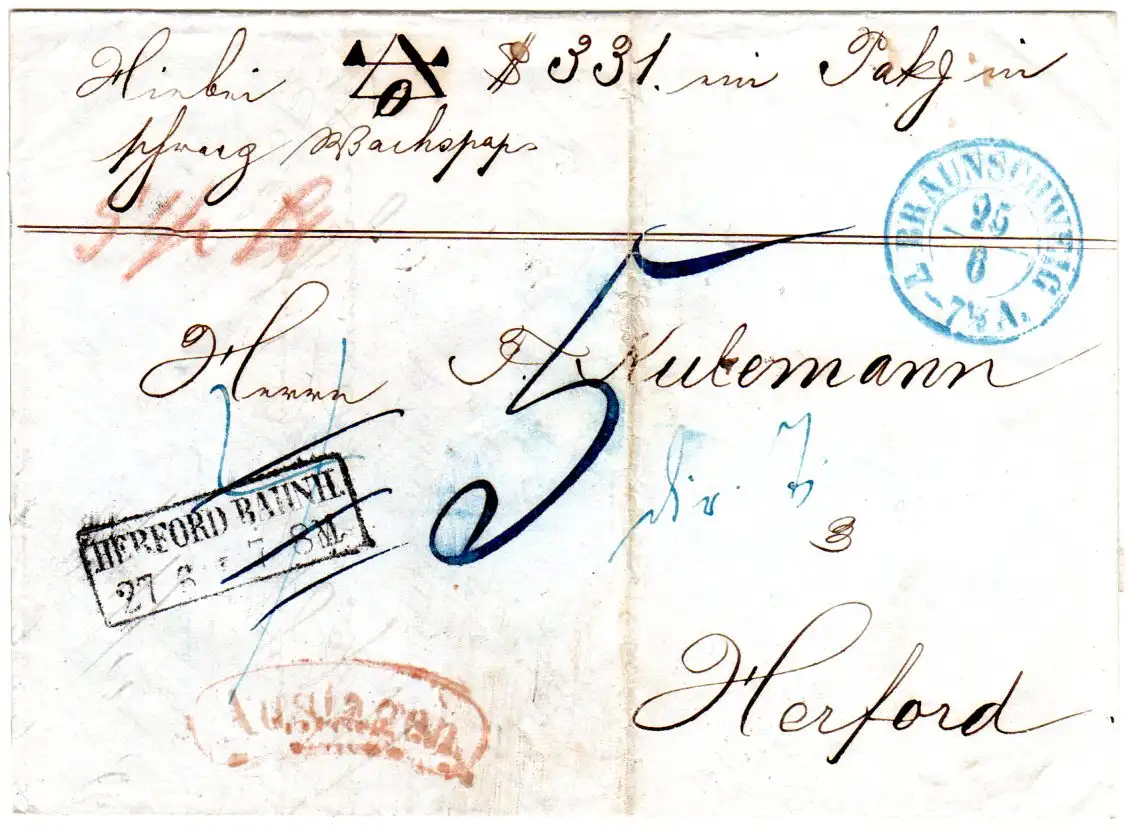 Hiebei $ 331. ein Pakg in
schwarz Wachspap.
BRAUNSCHWEIG
25
6
7½ A.
Herrn F. Kulemann
5
HERFORD BAHNH.
27 6 7 8M.
dir.
Auslagen
Herford